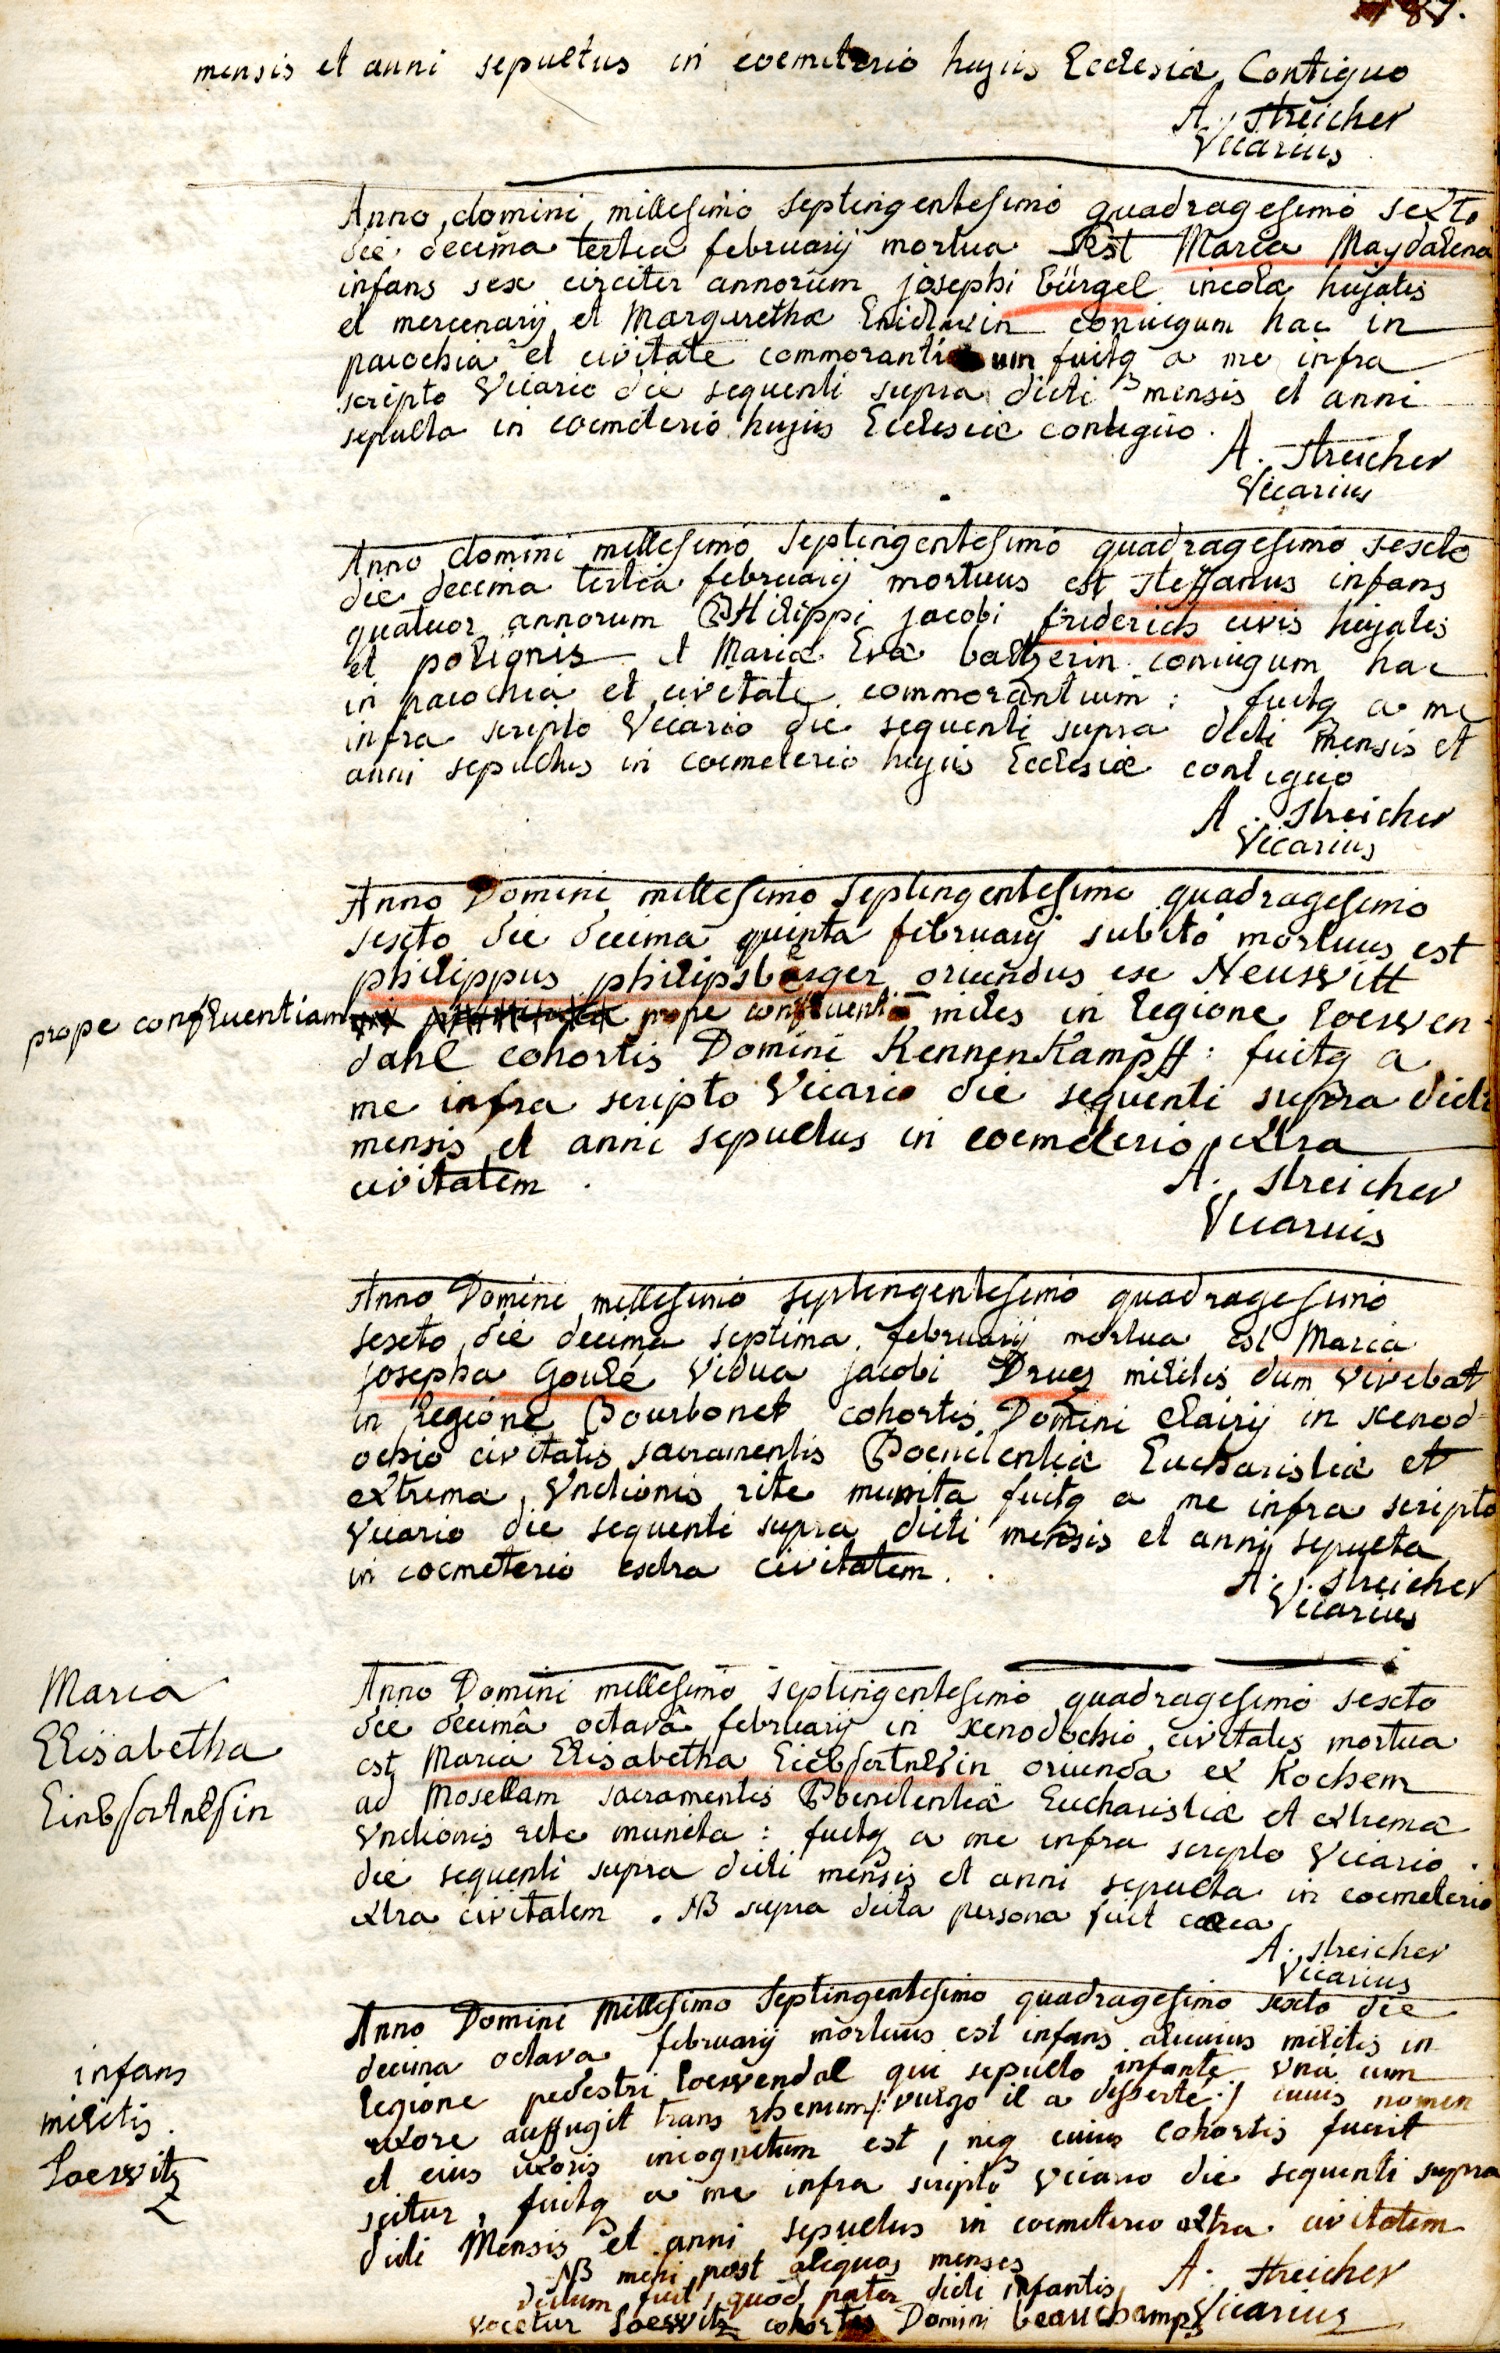 87.
mensis et anni sepultus in coemeterio hujus Ecclesiæ Contiguo
A. Streicher
Vicarius
Anno domini millesimo septingentesimo quadragesimo sexto
die decima tertia februarij mortua est Maria Magdalena
infans sex circiter annorum josephi bürgel incolæ hujatis
et mercenarij et Margarethæ conjugum hac in
parochia et civitate commorantium fuitq a me infra
scripto Vicario die sequenti supra dicti mensis et anni
sepulta in coemeterio hujus Ecclesiæ contiguo.
A. Streicher
Vicarius
Anno domini millesimo septingentesimo quadragesimo sexto
die decima tertia februarij mortuus est Steffanus infans
quatuor annorum Philippi jacobi friderich civis hujatis
et et Mariæ Evæ baltzerin conjugum hac
in parochia et civitate commorantium: fuitq a me
infra scripto Vicario die sequenti supra dicti mensis et
anni sepultus in coemeterio hujus Ecclesiæ contiguo
A. Streicher
Vicarius
Anno Domini millesimo septingentesimo quadragesimo
sexto die decima quinta februarij subito mortuus est
philippus philipsberger oriundus ex Neuswitt
prope confluentiam
prope confluentia miles in legione loewen-
dahl cohortis Domini Kennenkampff: fuitq a
me infra scripto Vicario die sequenti supra dicti
mensis et anni sepultus in coemeterio extra
civitatem.
A. Streicher
Vicarius
Anno Domini millesimo septingentesimo quadragesimo
sexto die decima septima februarij mortua est Maria
josepha Goulé Vidua jacobi Druez militis dum vivebat
in legione Bourbonet cohortis Domini clairij in xenod-
ochio civitatis sacramentis Poenitentiæ Eucharistiæ et
extrema Unctionis rite munita fuitq a me infra scripto
Vicario die sequenti supra dicti mensis et annij sepulta
in coemeterio extra civitatem.
A. Streicher
Vicarius
Maria
Elisabetha
Anno Domini millesimo septingentesimo quadragesimo sexto
die decimâ octavâ februarij in xenodochio civitatis mortua
est Maria Elisabetha oriunda ex Kochem
ad Mosellam sacramentis Poenitentiæ Eucharistiæ et extremæ
Unctionis rite munita: fuitq a me infra scripto Vicario
die sequenti supra dicti mensis et anni sepulta in coemeterio
extra civitatem. NB supra dicta persona fuit cæca
A. Streicher
Vicarius
infans
militis
Loewitz
Anno Domini Millesimo Septingentesimo quadragesimo sexto die
decima octava februarij mortuus est infans alicuius militis in
legione pedestri loewendal qui sepulto infante unâ cum
uxore auffugit trans rhenum /: vulgo il a desserte :/ cuius nomen
et eius uxoris incognitum est, neq cuius cohortis fuerit
scitur, fuitq a me infra scripto Vicario die sequenti supra
dicti Mensis et anni sepultus in coemeterio extra civitatem
NB mihi post aliquos menses
dictum fuit, quod pater dicti infantis
vocetur Loewitz cohortis Domini beauchamps
A. Streicher
Vicarius